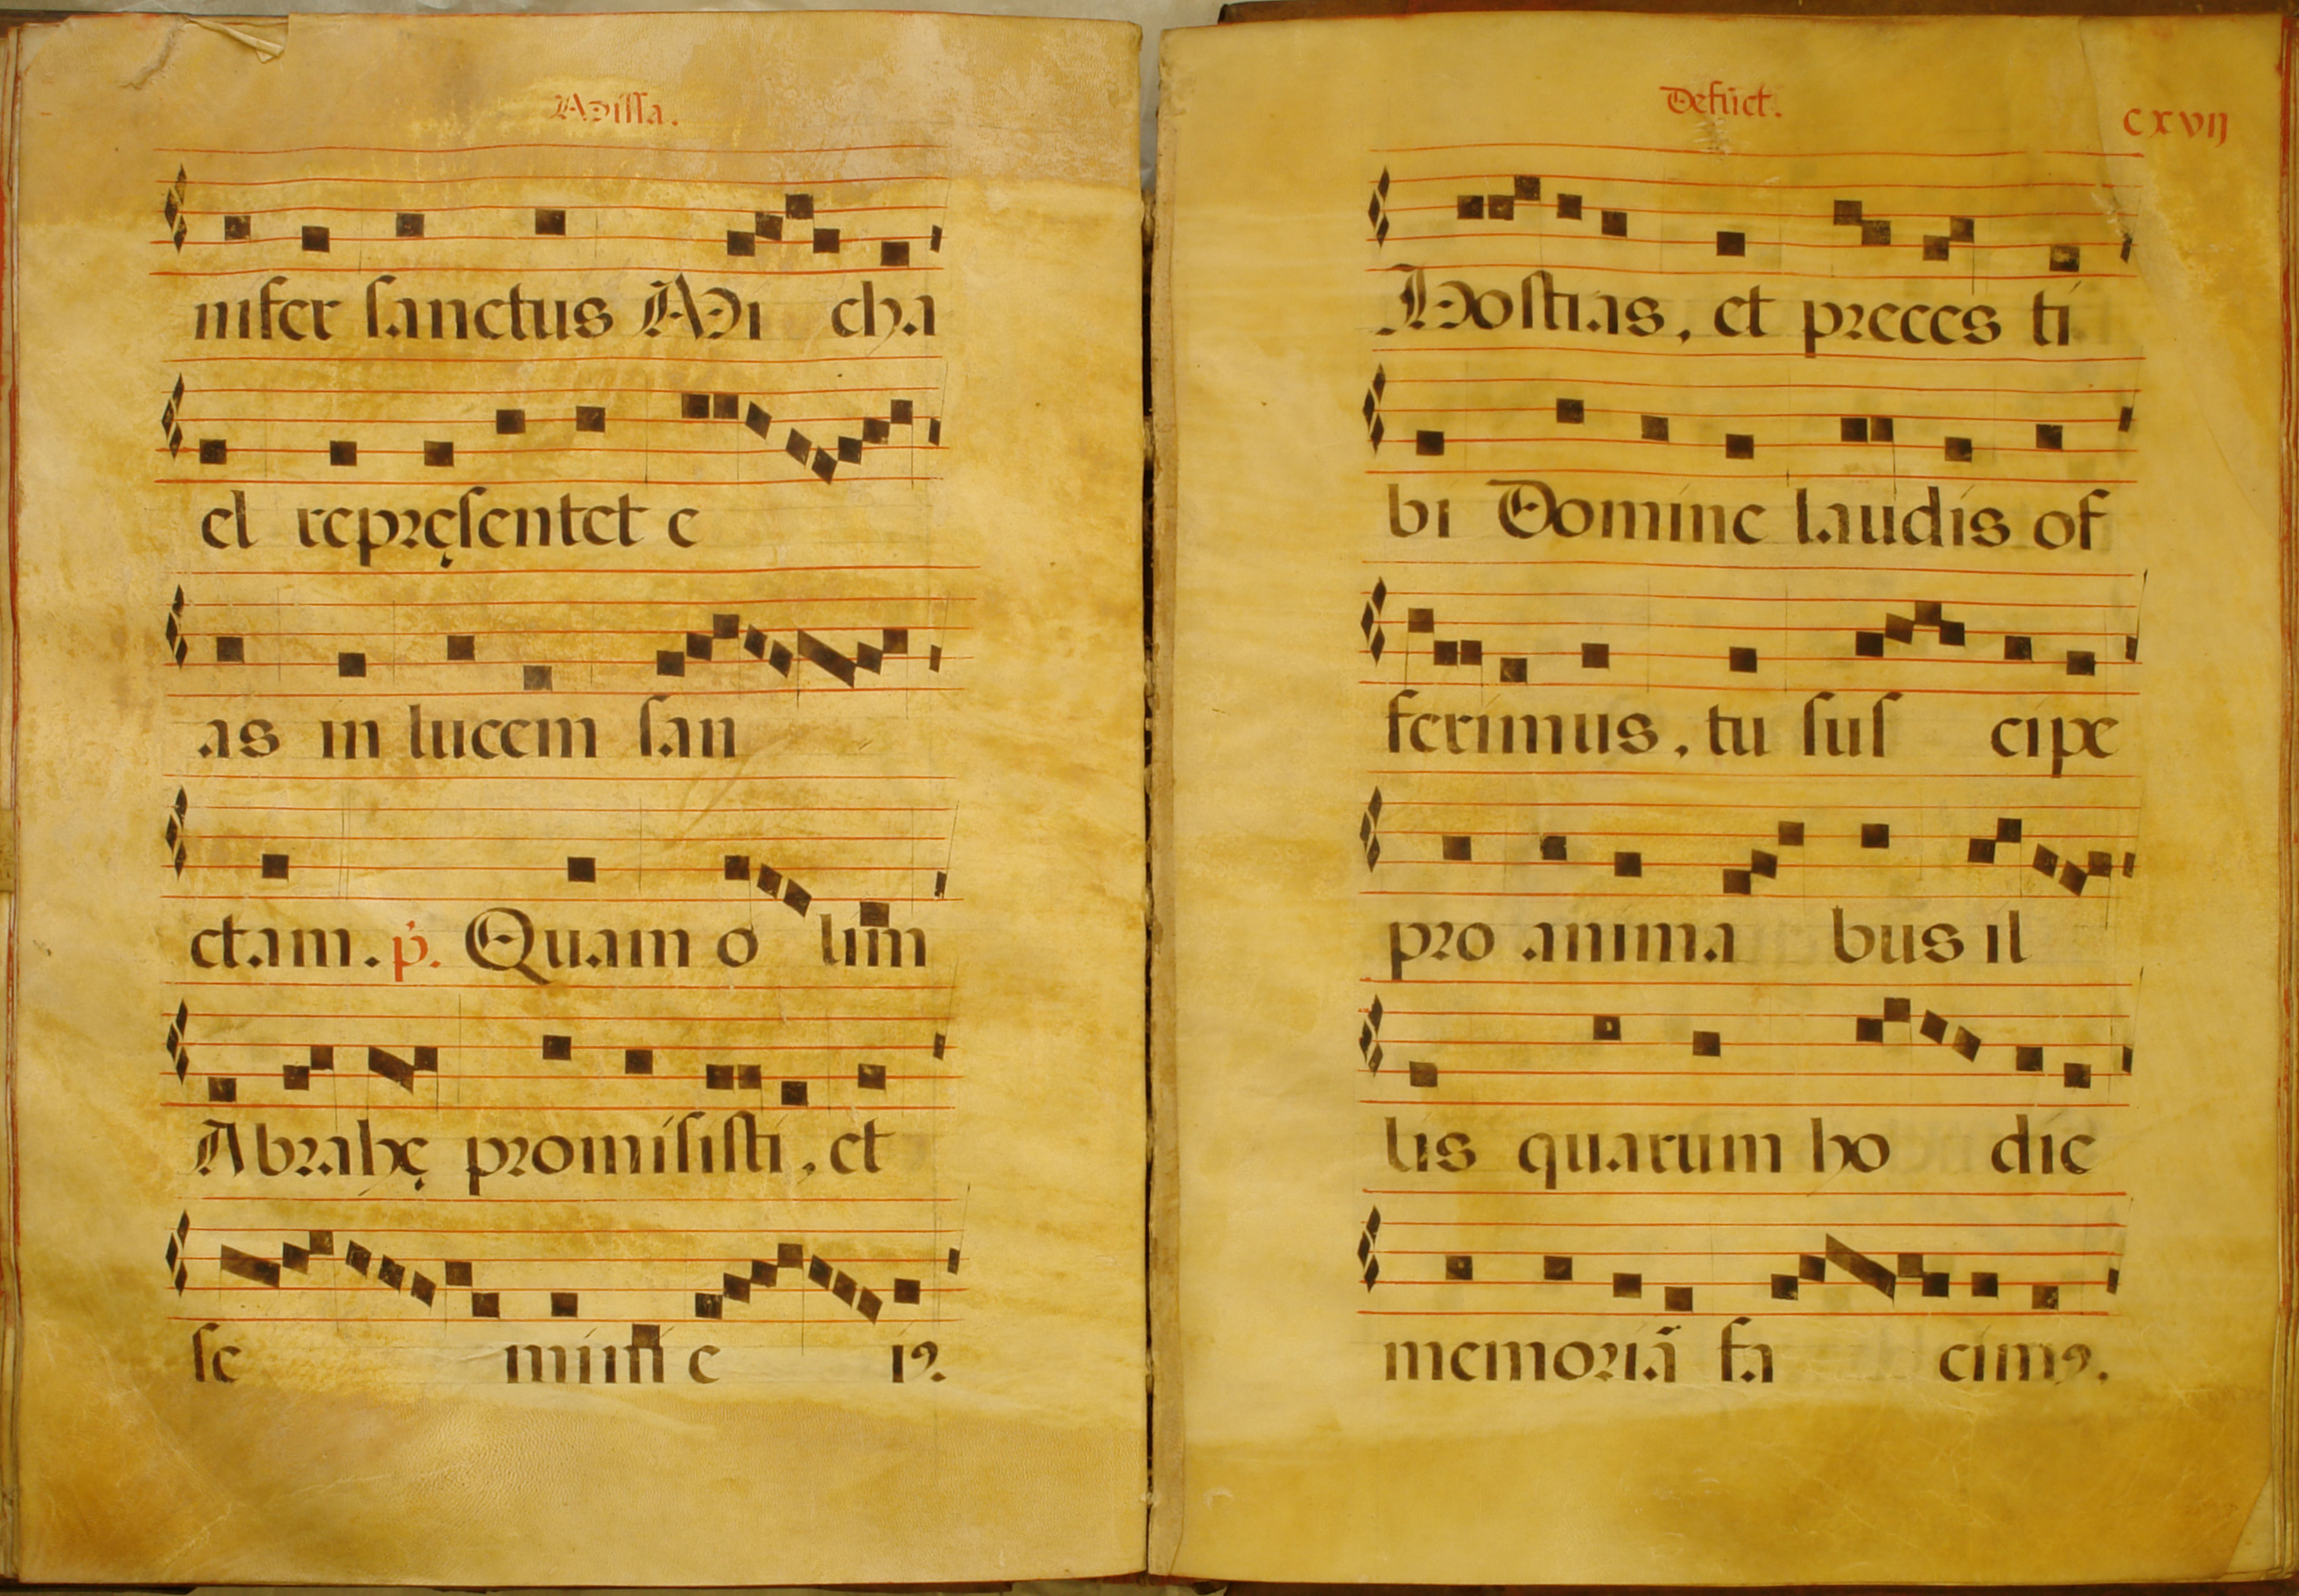 Missa.
nifer sanctus Mi cha
el repręsentet e
as in lucem san
ctam. p̉. Quam o lim
Abrahę promisisti, et
se mini e i9.
Defūct.
CXVIJ
Hostias, et preces ti
bi Domine laudis of
ferimus, tu sus cipe
pro anima bus il
lis quarum ho die
memoriā fa cim9.